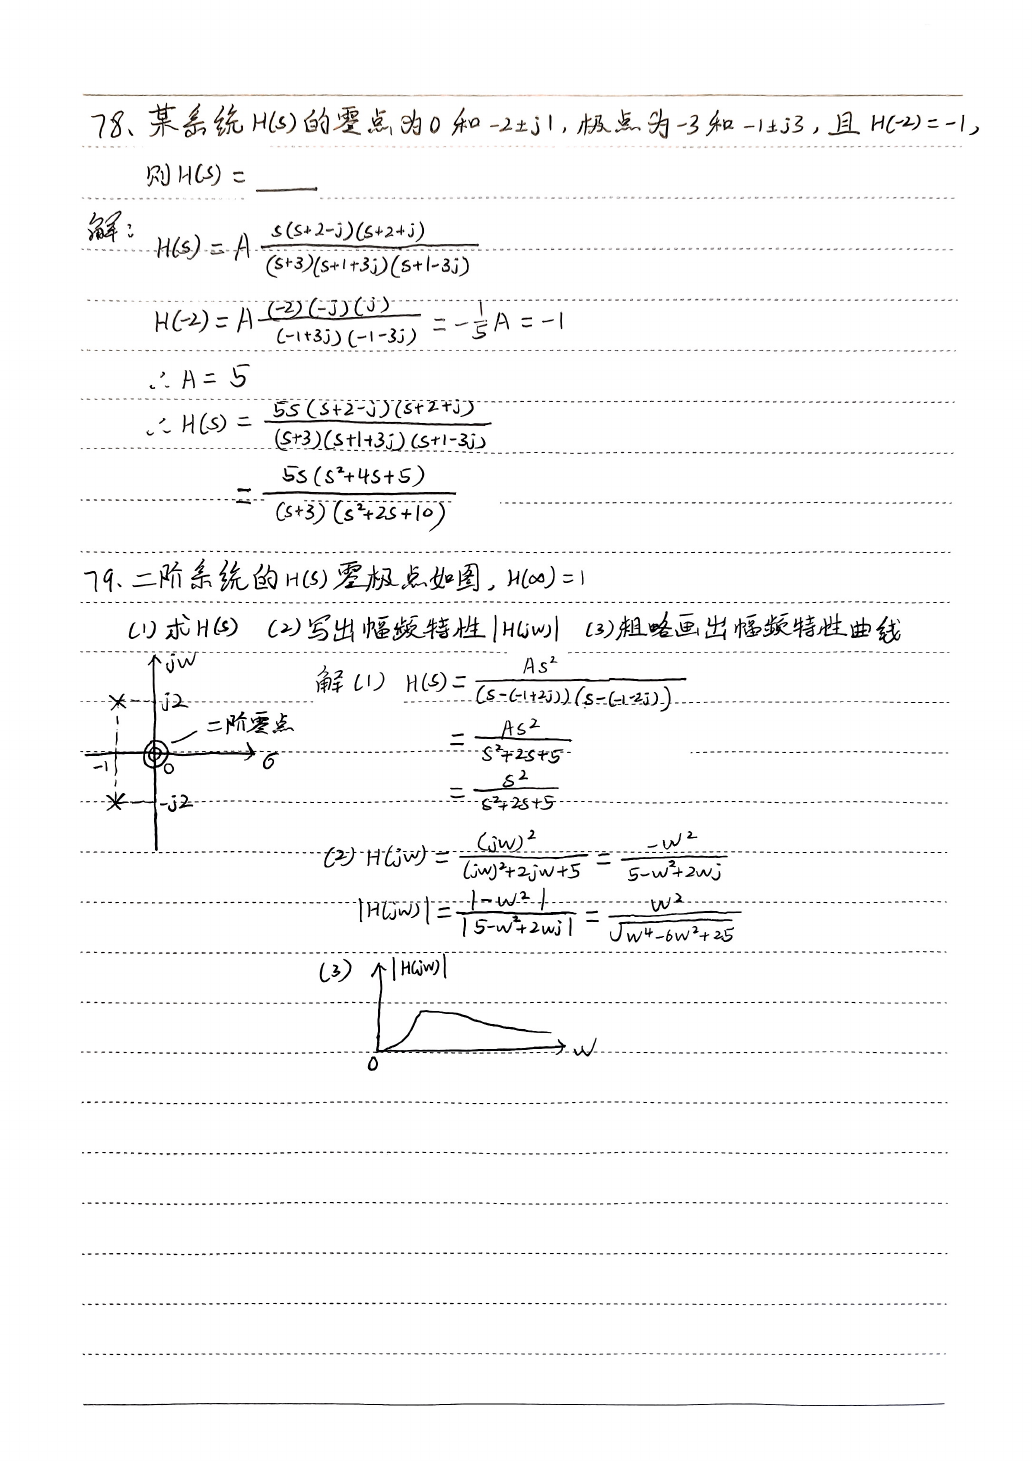 78、某系统H(s)的零点为0和-2±j1,极点为-3和-1±j3,且H(-2)=-1,
则H(s)=____
解:
H(s)=A s(s+2-j)(s+2+j)/(s+3)(s+1+3j)(s+1-3j)
H(-2)=A (-2)(-j)(j)/(-1+3j)(-1-3j) = -1/5 A = -1
∴ A = 5
∴ H(s) = 5s(s+2-j)(s+2+j)/(s+3)(s+1+3j)(s+1-3j)
= 5s(s²+4s+5)/(s+3)(s²+2s+10)
79、二阶系统的H(s)零极点如图,H(∞)=1
(1)求H(s) (2)写出幅频特性|H(jw)| (3)粗略画出幅频特性曲线
jw
j2
二阶零点
-1
0
σ
-j2
解(1) H(s)= As²/(s-(-1+2j))(s-(-1-2j))
= As²/s²+2s+5
= s²/s²+2s+5
(2) H(jw) = (jw)²/(jw)²+2jw+5 = -w²/5-w²+2wj
|H(jw)| = |-w²|/|5-w²+2wj| = w²/√w⁴-6w²+25
(3) |H(jw)|
0
w